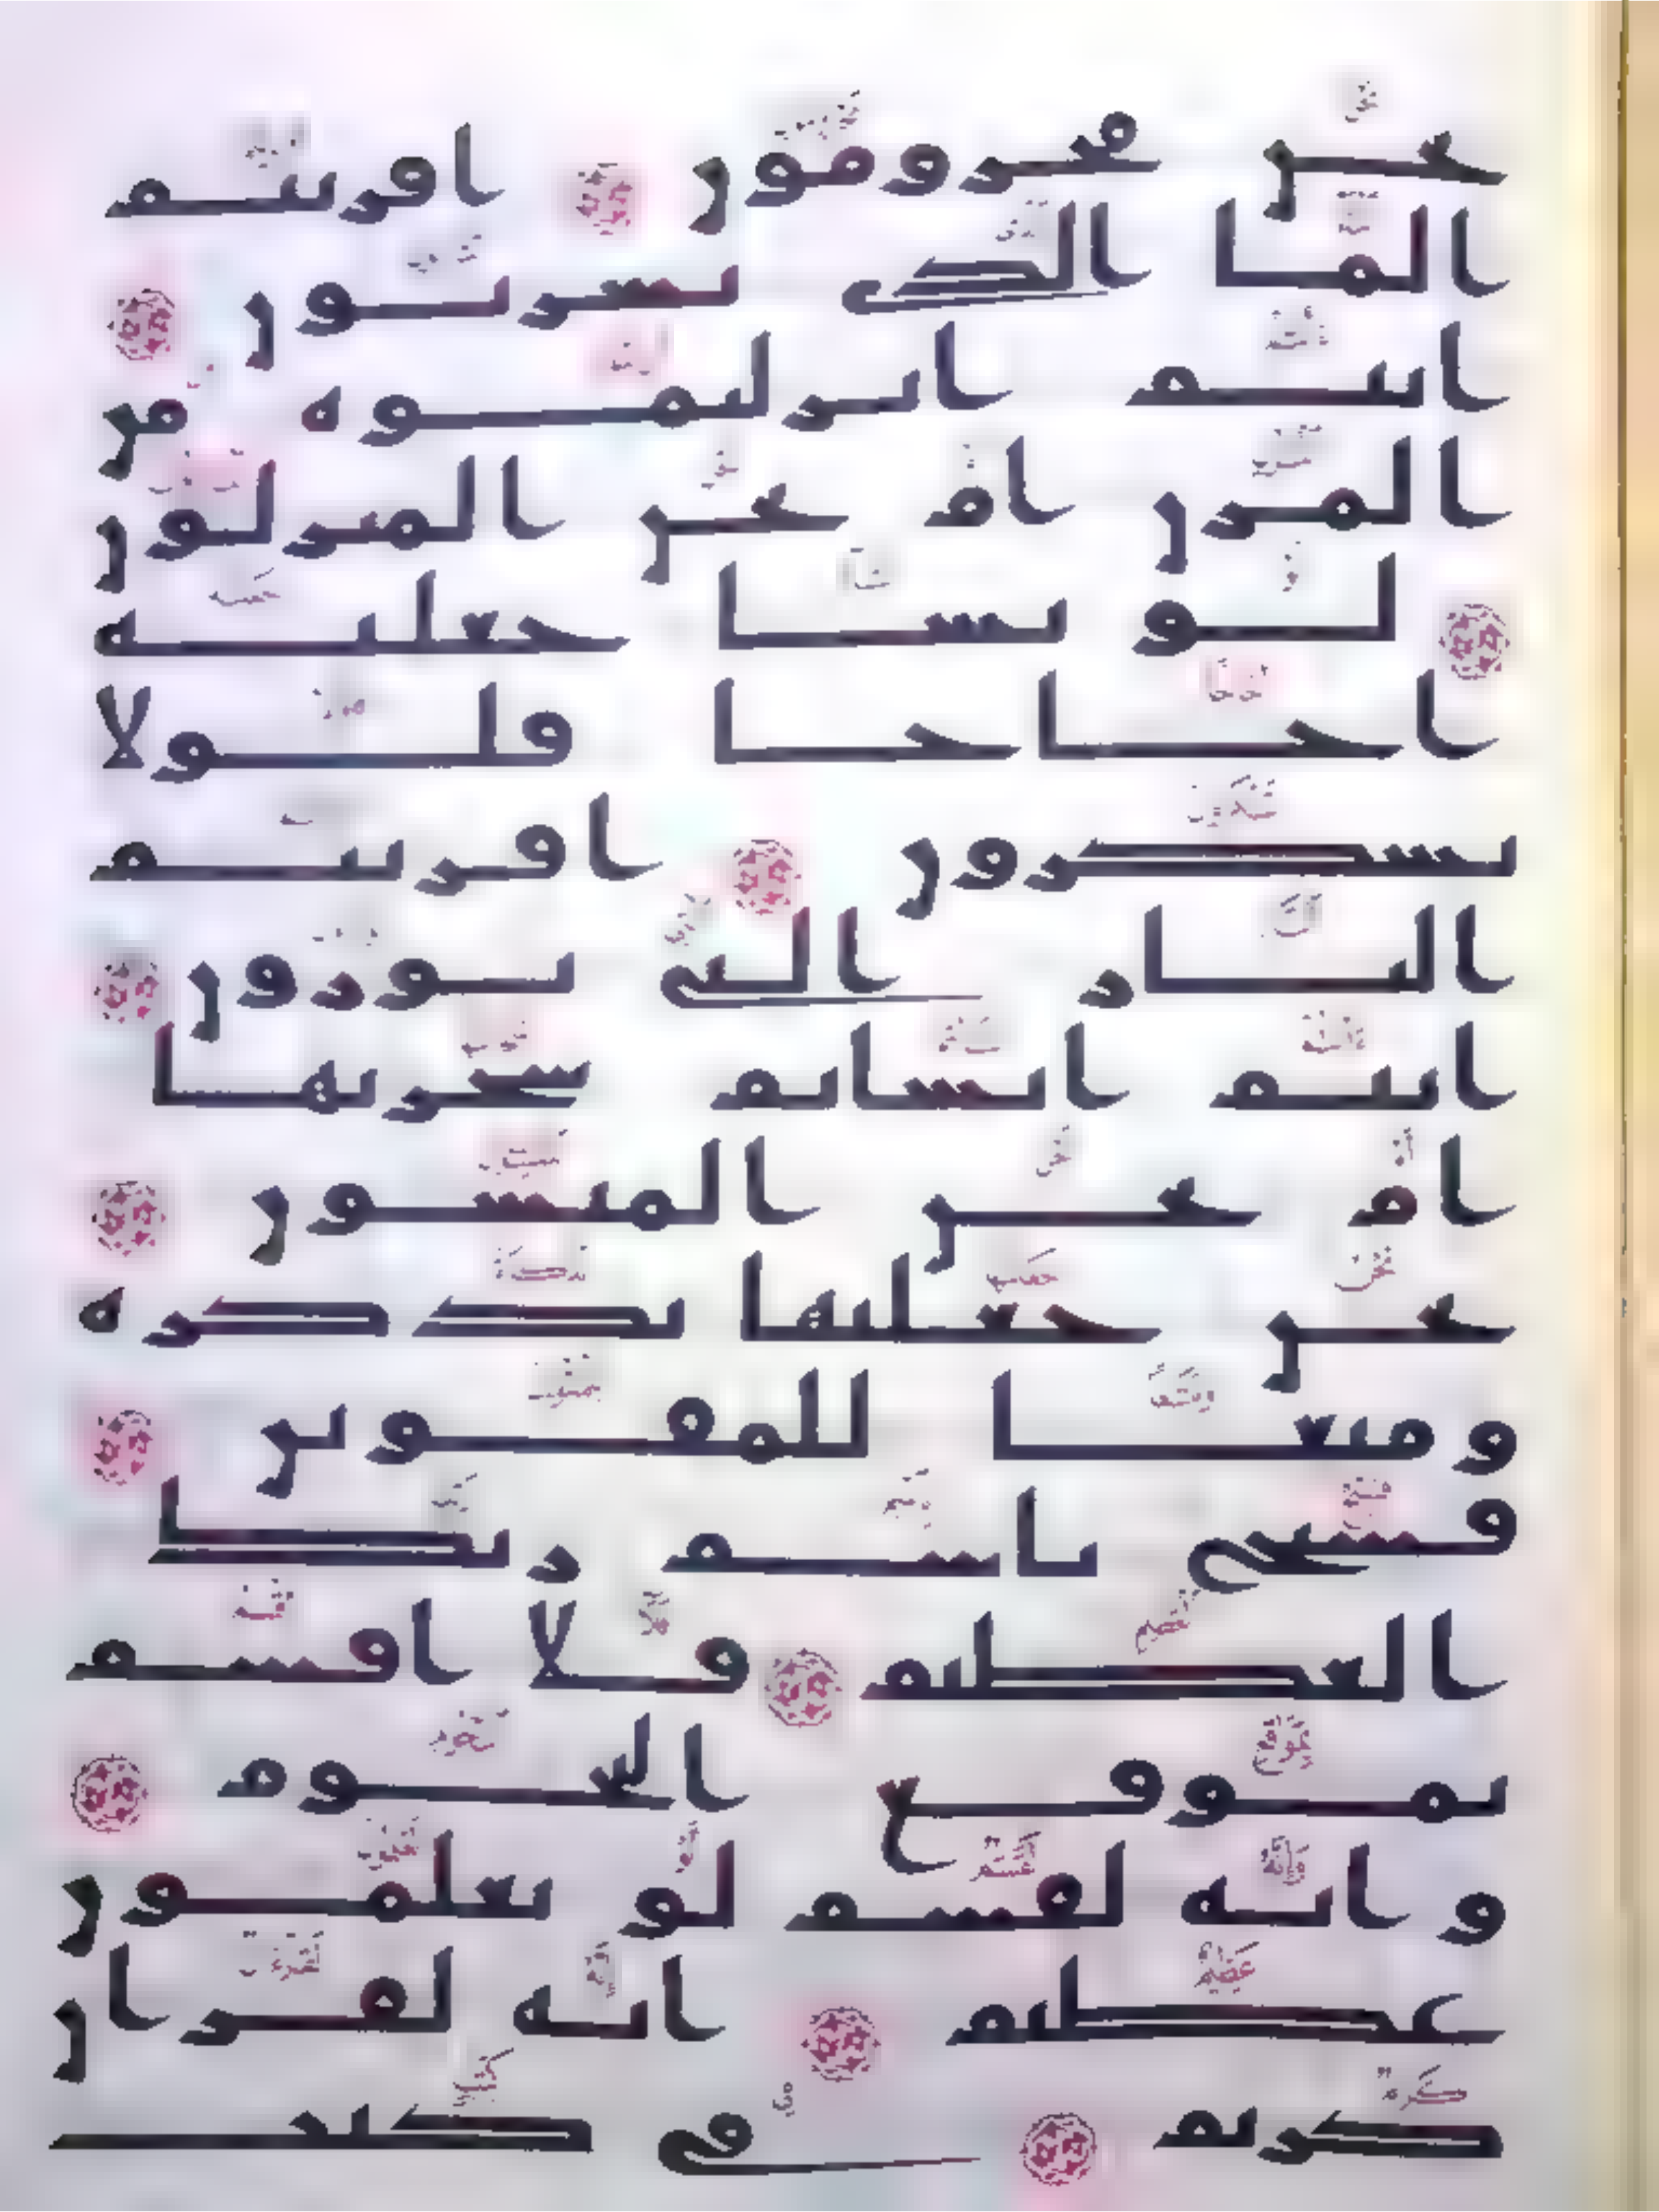 نحن محرومون افريتم
الما الذى تشربون
انتم انزلتموه من
المزن ام نحن المنزلون
لو نشا جعلنه
اجاجا فلولا
تشكرون افريتم
النار التى تورون
انتم انشاتم شجرتها
ام نحن المنشون
نحن جعلنها تذكره
ومتعا للمقوين
فسبح باسم ربك
العظيم فلا اقسم
بموقع النجوم
وانه لقسم لو تعلمون
عظيم انه لقران
كريم فى كتب